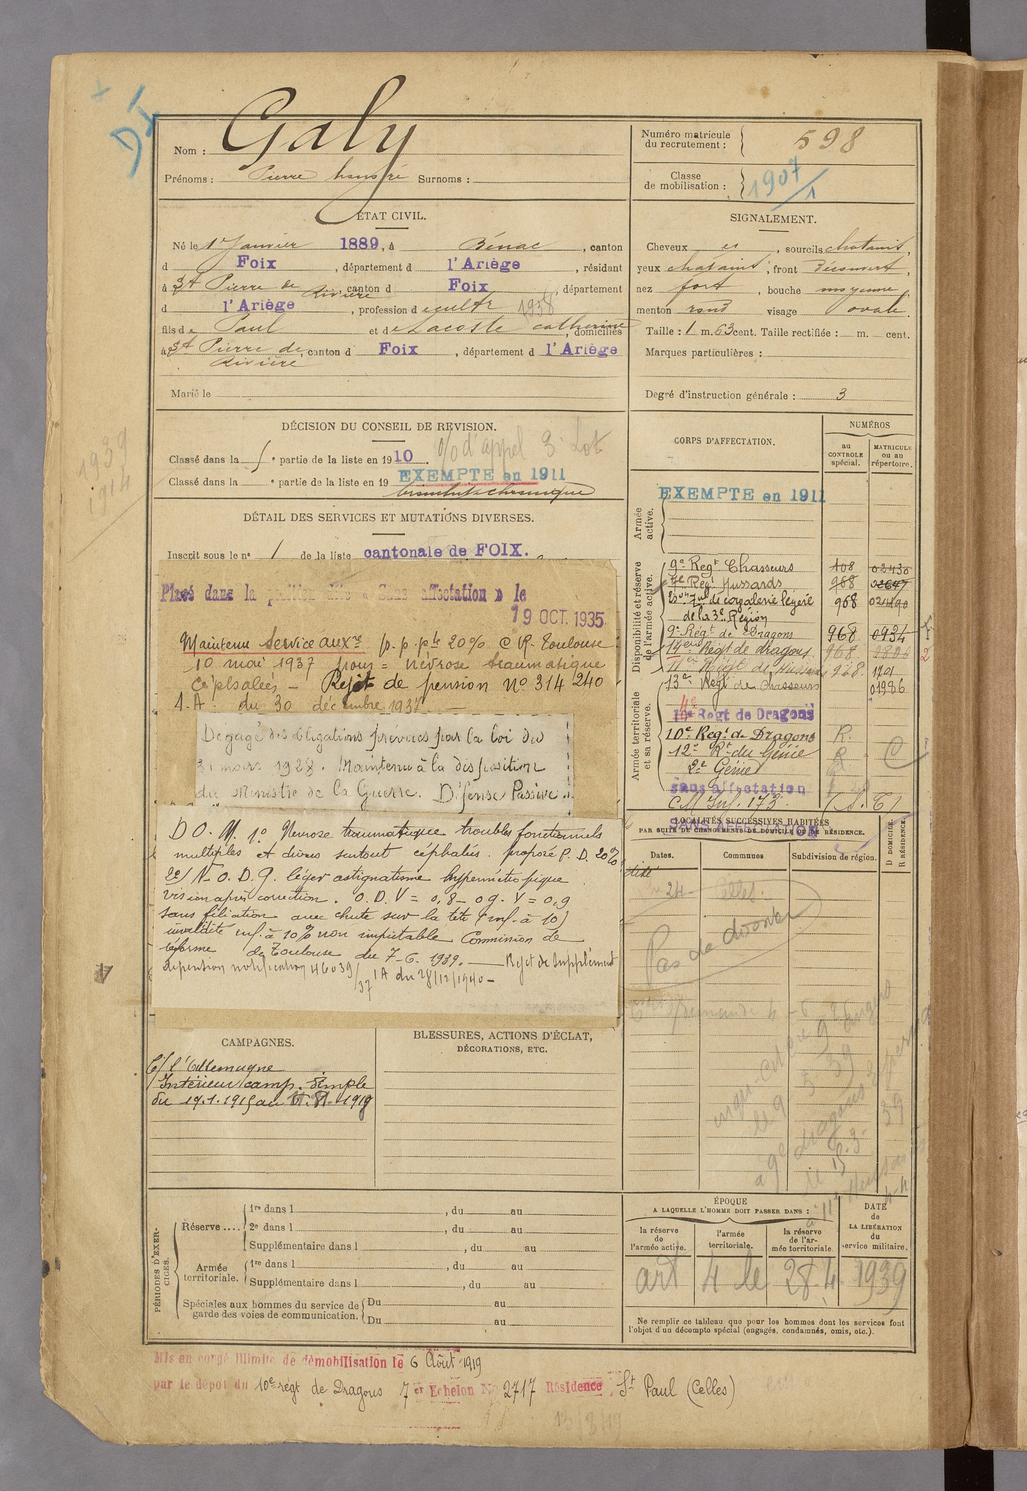 DI
Nom : Galy
Prénoms : Pierre Surnoms :
Numéro matricule du recrutement : 598
Classe de mobilisation : 1907/1
ÉTAT CIVIL.
Né le 1er Janvier 1889, à Bénac, canton
d Foix, département d l'Ariège, résidant
à St Pierre de Rivière, canton d Foix, département
d l'Ariège, profession d cultr 1938
fils de Paul et de Lacoste Catherine, domiciliés
à St Pierre de Rivière, canton d Foix, département d l'Ariège
Marié le
SIGNALEMENT.
Cheveux et, sourcils chatains,
yeux chatains, front Découvert,
nez fort, bouche moyenne,
menton rond visage ovale.
Taille : 1 m. 63 cent. Taille rectifiée : m. cent.
Marques particulières :
Degré d'instruction générale : 3
1939
1914
DÉCISION DU CONSEIL DE REVISION.
Classé dans la e partie de la liste en 1910
Classé dans la e partie de la liste en 19 EXEMPTÉ en 1911
bronchite chronique
DÉTAIL DES SERVICES ET MUTATIONS DIVERSES.
Inscrit sous le no 1 de la liste cantonale de FOIX.
Placé dans la position dite « Sans affectation » le
19 OCT. 1935
Maintenu Service auxre p. p. pte 20% C R. Toulouse
10 mai 1937 pour = névrose traumatique
Céphalées - Rejet de pension No 314 240
I.A. du 30 décembre 1937
Dégagé des obligations prévues par la loi du
31 mars 1928. Maintenu à la disposition
du Ministre de la Guerre. Défense Passive.
D O. M. 1o Nevrose traumatique troubles fonctionnels
multiples et divers surtout céphalées. proposé P. D. 20%
2e/ N. O. D. G. léger astigmatisme hypermétropique
vision après correction. O. D. V = 0,8 - O g. V = 0,9
sans filiation avec chute sur la tête (inf. à 10)
invalidité inf. à 10% non imputable Commission de
réforme de Toulouse du 7-6. 1939. Rejet de supplément
de pension notification 46039/37 I A du 28/12/1940 -
CORPS D'AFFECTATION.
NUMÉROS
au CONTROLE spécial.
MATRICULE ou au répertoire.
Armée active.
EXEMPTÉ en 1911
Disponibilité et réserve de l'armée active.
9e Regt Chasseurs 108 02430
Regt Hussards 968 02647
de cavalerie légère 968
de la 3e Région
9e Regt de Dragons 968 0434
Regt de dragons 968
11e Regt de Hussards 968 1701
13e Regt de Chasseurs 01986
Armée territoriale et sa réserve.
Regt de Dragons
10e Regt de Dragons R.
12e Rt du Génie R C
2e Génie
Sans affectation
C M Inf. 173
LOCALITÉS SUCCESSIVES HABITÉES
PAR SUITE DE CHANGEMENTS DE DOMICILE OU DE RÉSIDENCE.
SANS AFFECTATION
Dates. Communes Subdivision de région. D DOMICILE. R RÉSIDENCE.
24 Celles
Pas de dossier
CAMPAGNES.
C/ l'Allemagne
Intérieur camp. simple
du 19.1.1915 au 1919
BLESSURES, ACTIONS D'ÉCLAT,
DÉCORATIONS, ETC.
PÉRIODES D'EXERCICES.
Réserve .... 1re dans l , du au
2e dans l , du au
Supplémentaire dans l , du au
Armée territoriale. 1re dans l , du au
Supplémentaire dans l , du au
Spéciales aux hommes du service de garde des voies de communication. Du au
Du au
ÉPOQUE
A LAQUELLE L'HOMME DOIT PASSER DANS :
la réserve de l'armée active.
l'armée territoriale.
la réserve de l'armée territoriale.
DATE de LA LIBÉRATION du service militaire.
art 4 le 28.4. 1939
Ne remplir ce tableau que pour les hommes dont les services font
l'objet d'un décompte spécial (engagés, condamnés, omis, etc.).
Mis en congé illimité de démobilisation le 6 Août 1919
par le dépôt du 10e régt de Dragons 7er Echelon No 2717 Résidence St Paul (Celles)
13/8/19